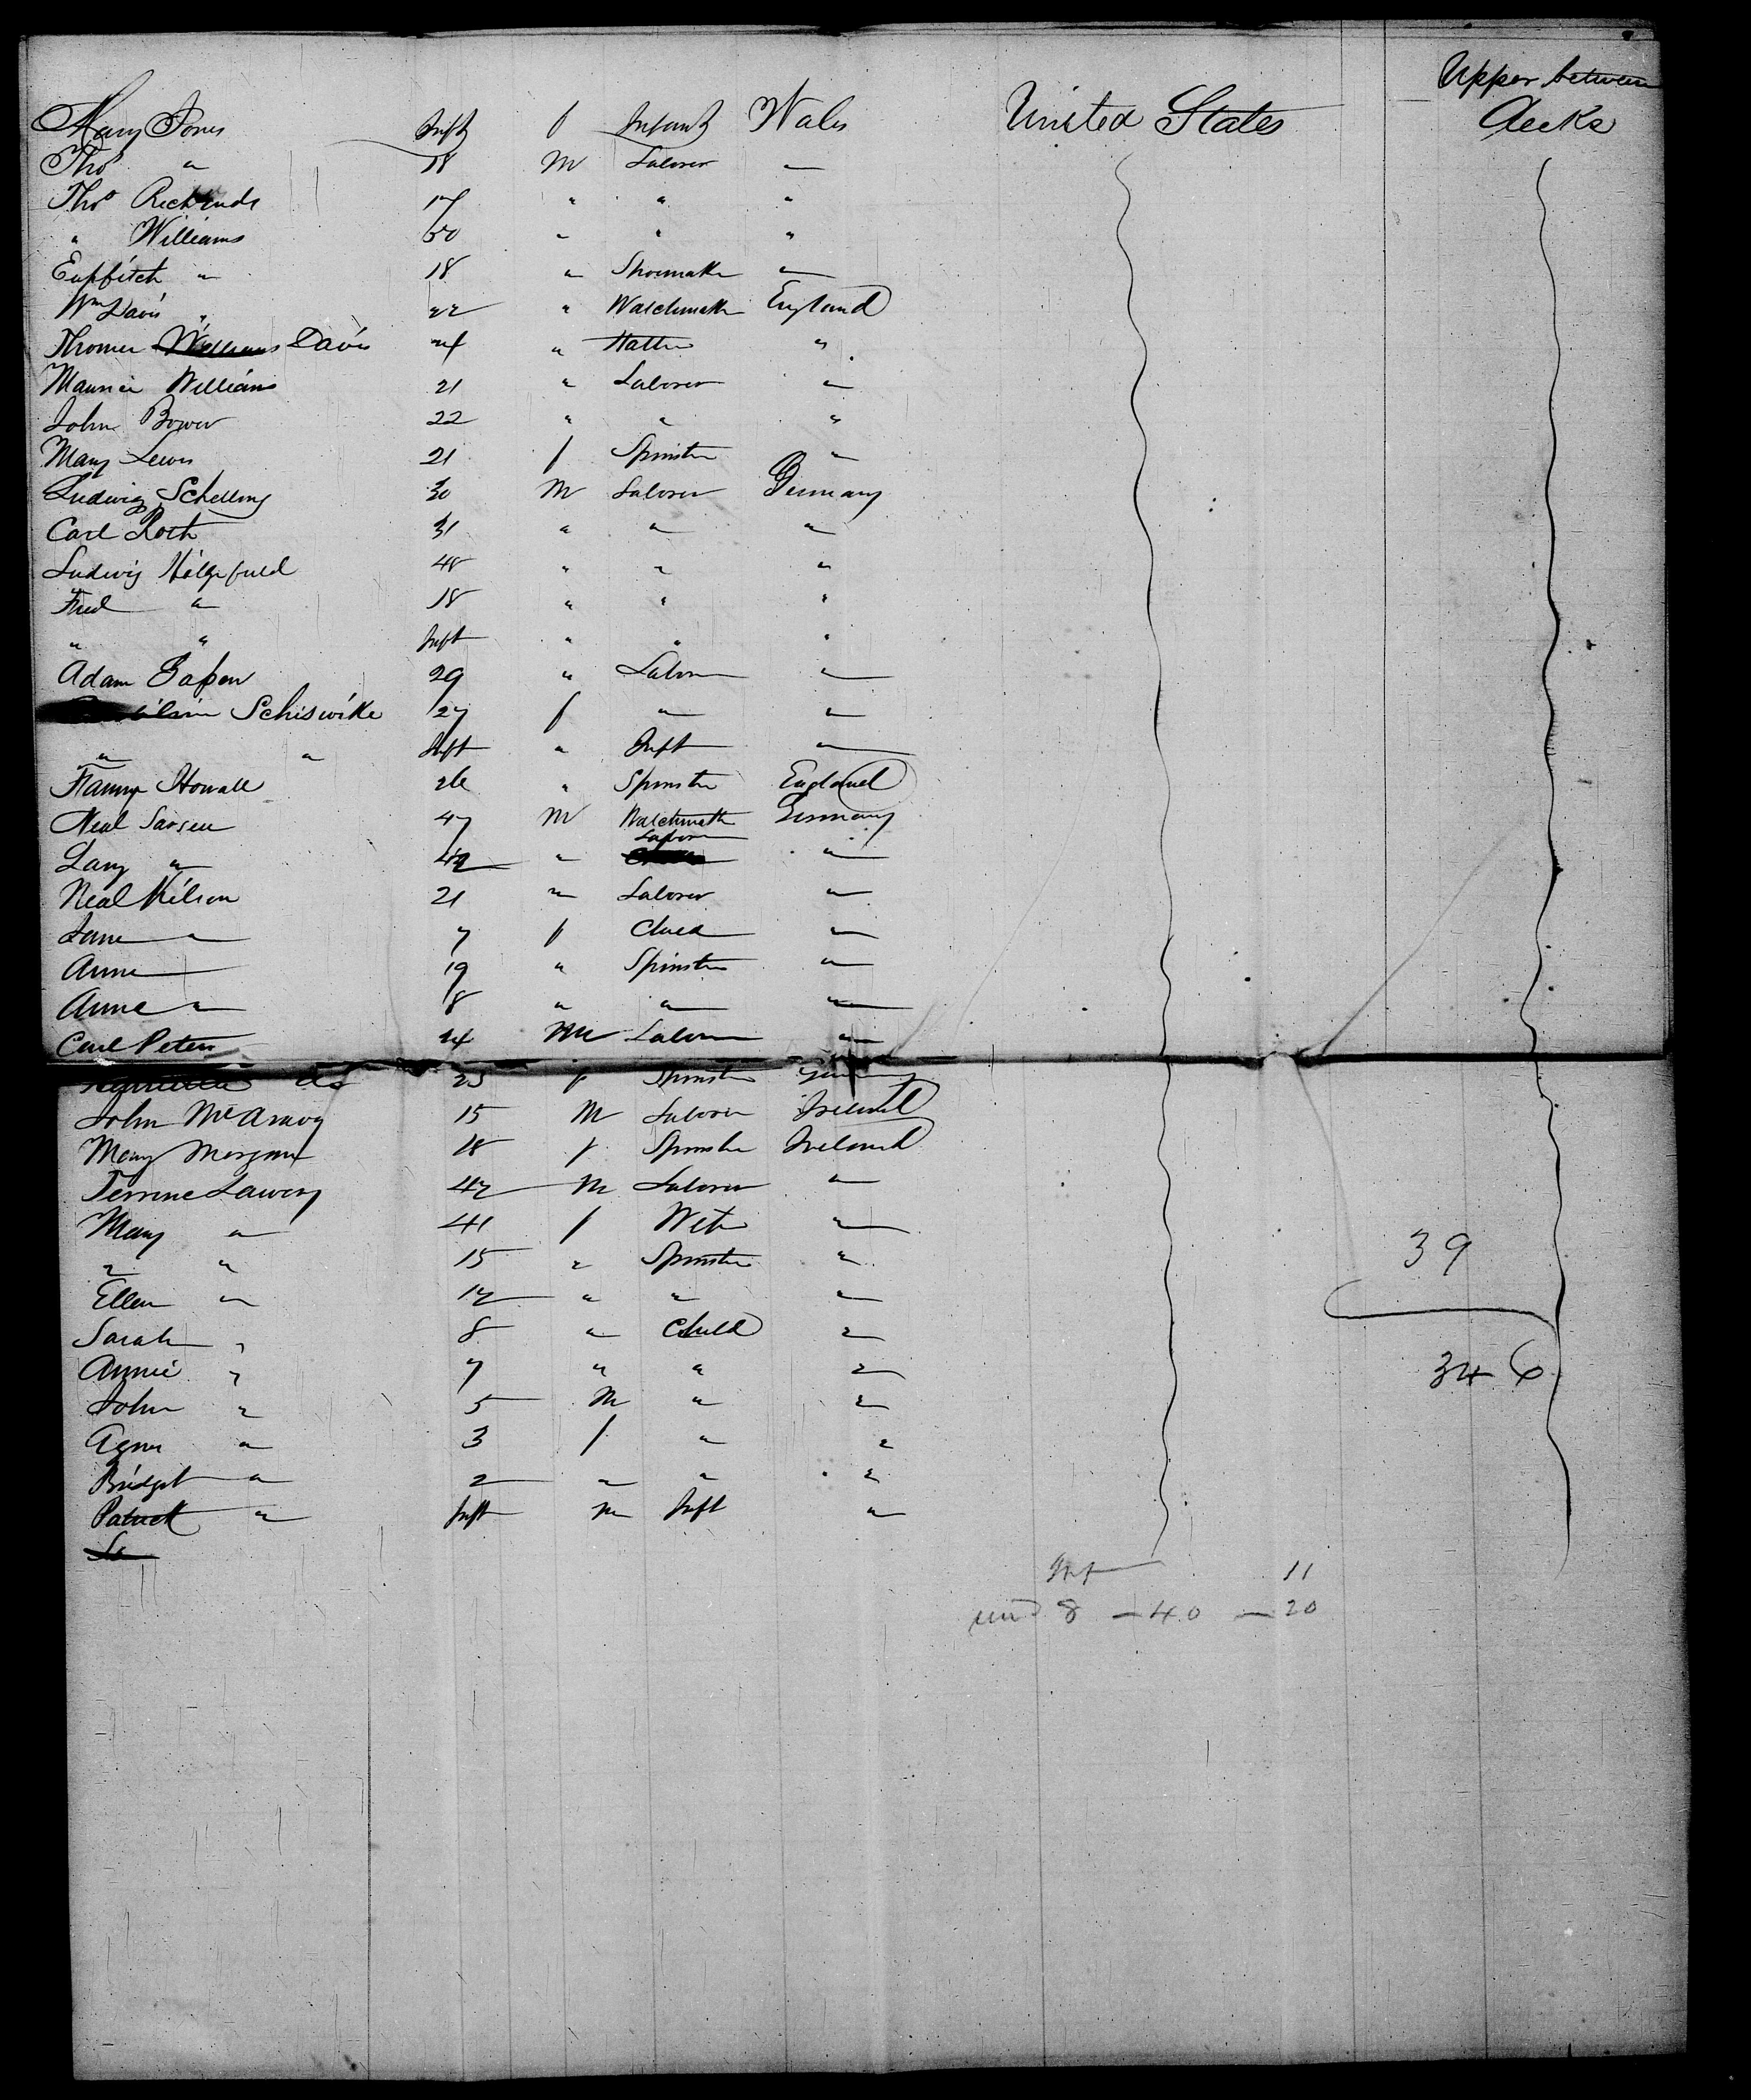 Upper between
Mary Jones Inft f Infant Wales United States Decks
Thos " 18 M Laborer "
Thos Richards 17 " " "
" Williams 50 " " "
" 18 " Shoemaker "
Wm Davis " 22 " Watchmaker England
Thomas Williams Davis 24 " Hatter "
Maurice Williams 21 " Laborer "
John Bower 22 " " "
Mary Lewis 21 f Spinster "
Ludwig Schelling 30 M Laborer Germany
Carl Roth 31 " " "
Ludwig 48 " " "
Fred " 18 " " "
" " Inft " " "
Adam 29 " Labor "
Schiswike 27 f " "
" " Inft " Inft "
Fanny Howall 26 " Spinster England
Neal Larsen 47 M Watchmaker Germany
Labor
Lary " 42 " "
Neal Nilson 21 " Laborer "
Jane " 7 f Child "
Anne 19 " Spinster "
Anne " 8 " " "
Carl Peters 24 M Labor "
do 25 f Spinster Germany
John McAravy 15 M Laborer Ireland
Mary Morgan 18 f Spinster Ireland
Lawery 42 M Laborer "
Mary " 41 f Wife "
" " 15 " Spinster "
39
Ellen " 12 " " "
Sarah " 8 " Child "
Annie " 7 " " "
346
John " 5 M " "
Agnes " 3 f " "
Bridget " 2 " " "
Patrick " Inft M Inft "
La
Inf 11
und 8 - 40 - 20